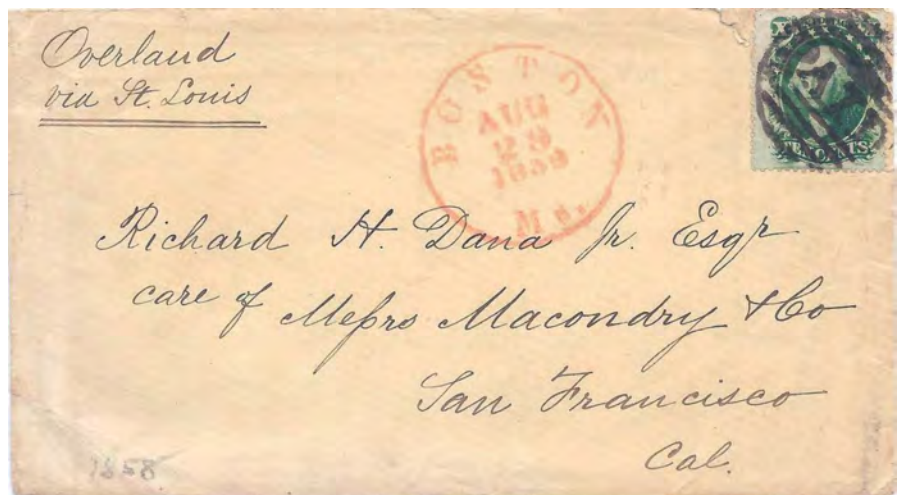 Overland
via St. Louis
BOSTON
AUG
29
1859
Ms.
TEN CENTS.
Richard H. Dana Jr. Esqr
care of Messrs Macondry & Co
San Francisco
Cal.
1858